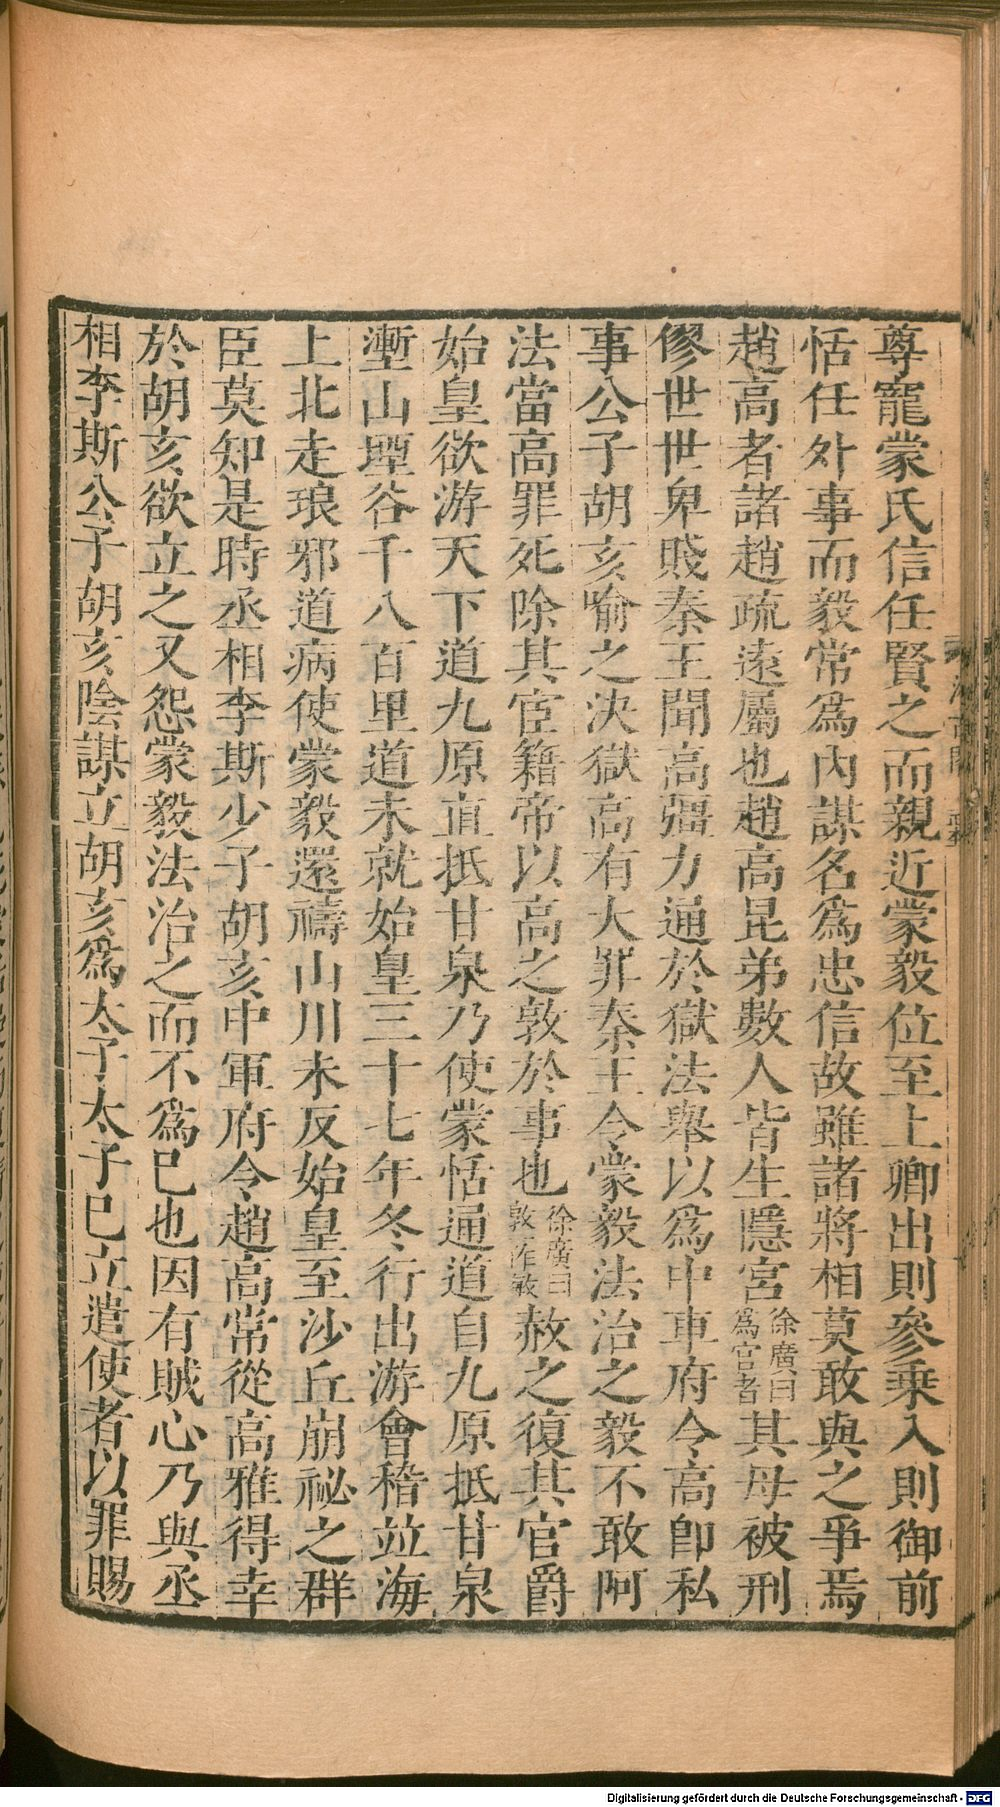 尊寵蒙氏信任賢之而親近蒙毅位至上卿出則參乗入則御前
恬任外事而毅常爲內謀名爲忠信故雖諸將相莫敢與之爭焉
趙高者諸趙疏遠屬也趙高昆弟數人皆生隱宮徐廣曰爲宦者其母被刑
僇世世卑賤秦王聞高彊力通於獄法舉以爲中車府令高卽私
事公子胡亥喻之決獄高有大罪秦王令蒙毅法治之毅不敢阿
法當高罪死除其宦籍帝以高之敦於事也徐廣曰敦一作敏赦之復其官爵
始皇欲游天下道九原直抵甘泉乃使蒙恬通道自九原抵甘泉
壍山堙谷千八百里道未就始皇三十七年冬行出游會稽竝海
上北走琅邪道病使蒙毅還禱山川未反始皇至沙丘崩祕之群
臣莫知是時丞相李斯少子胡亥中軍府令趙高常從高雅得幸
於胡亥欲立之又怨蒙毅法治之而不爲巳也因有賊心乃與丞
相李斯公子胡亥陰謀立胡亥爲太子太子巳立遣使者以罪賜
Digitalisierung gefördert durch die Deutsche Forschungsgemeinschaft - DFG